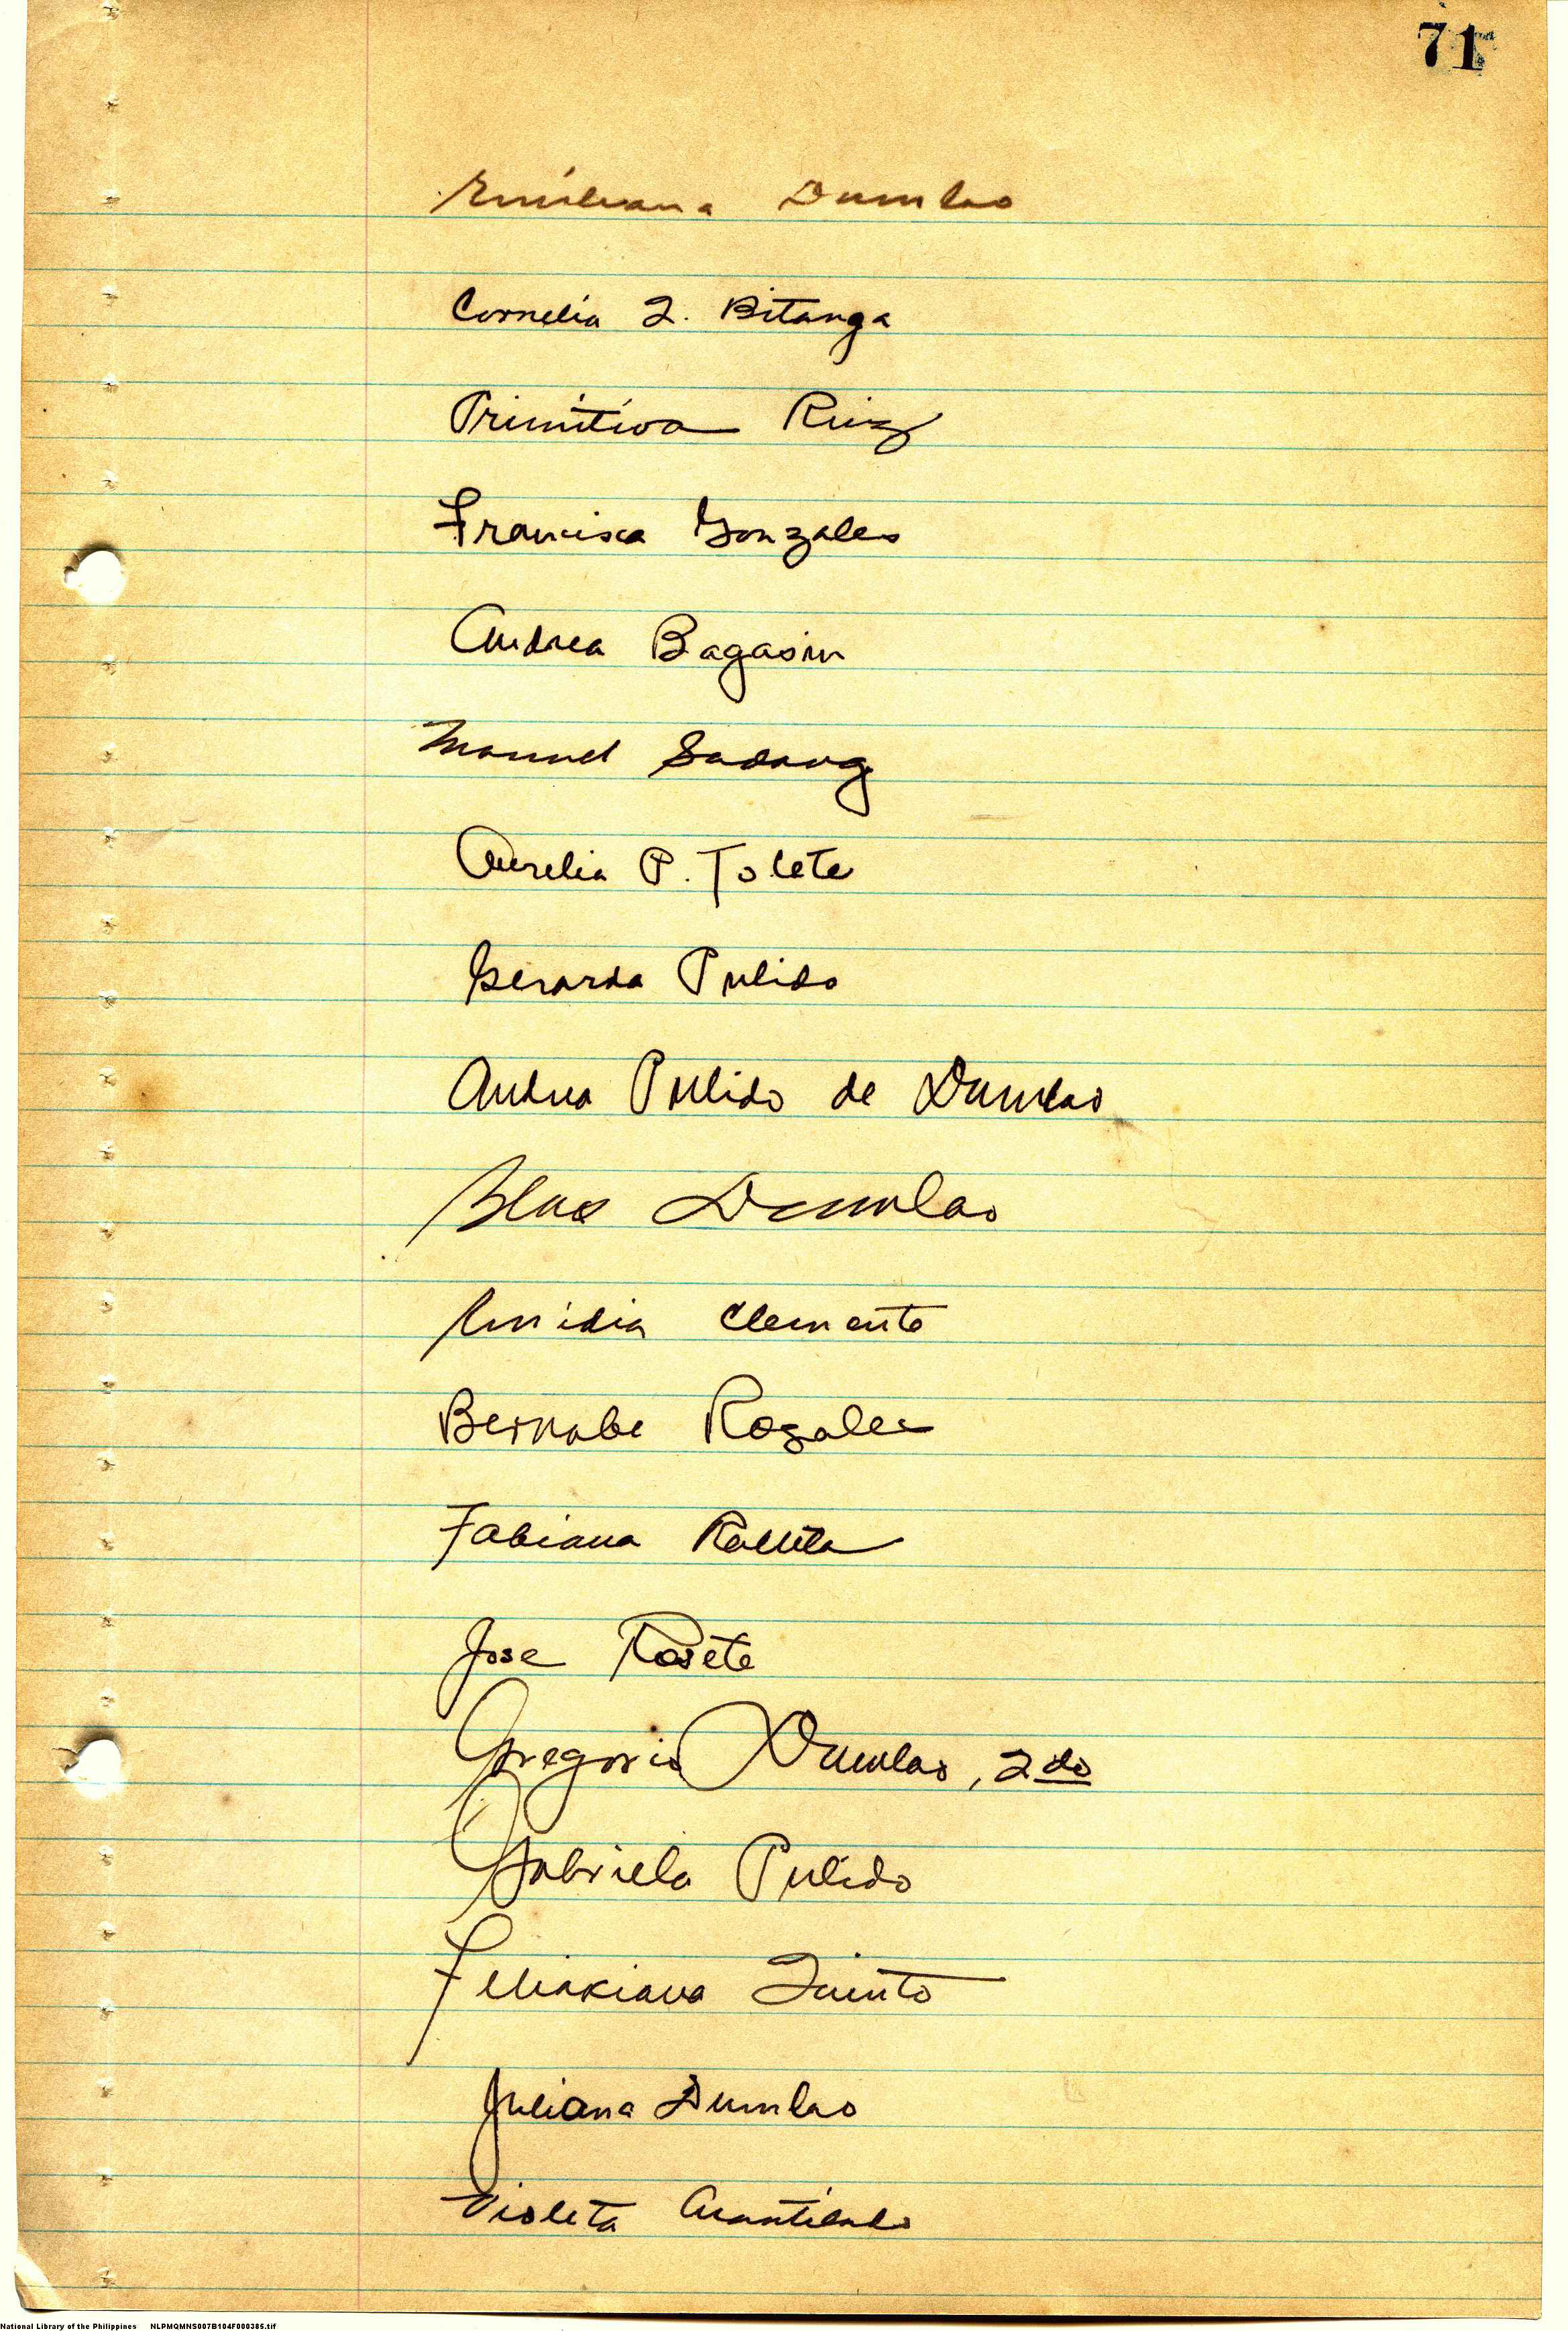 71
Emiliana Dumlao
Cornelia Q. Bitanga
Primitiva Ruiz
Francisca Gonzales
Andrea Bagasin
Manuel Sadang
Aurelia P. Tolete
Gerarda Pulido
Andrea Pulido de Dumlao
Blas Dumlao
Clemente
Bernabe Rosales
Fabiana
Jose Rosete
Gregorio Dumlao, 2do
Gabriela Pulido
Quinto
Juliana Dumlao
Violeta
National Library of the Philippines NLPMQMNS007B104F000385.tif